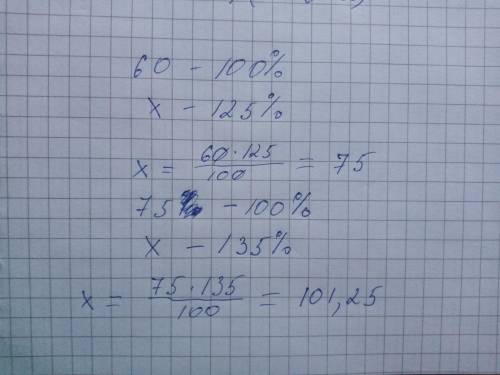 60 - 100%
x - 125%
x = 60·125/100 = 75
75 - 100%
x - 135%
x = 75·135/100 = 101,25